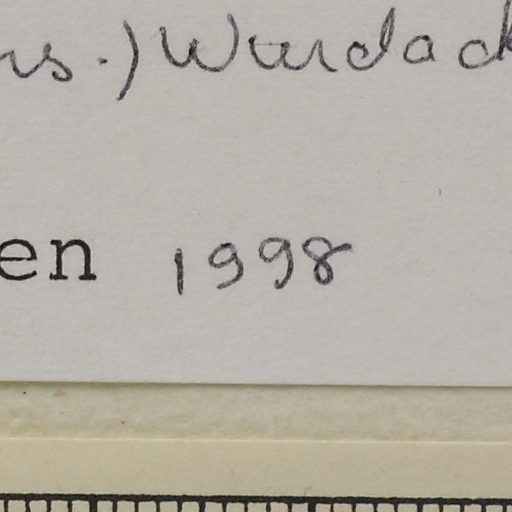 ns.) Wurdack
en 1998